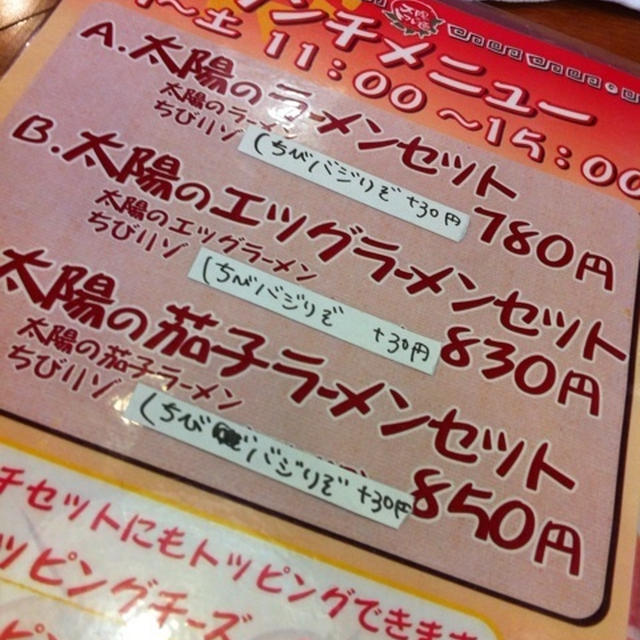 ランチメニュー
～土 11：00～15：00
A.太陽のラーメンセット
太陽のラーメン
ちびリゾ (ちびバジりぞ +30円
780円
B.太陽のエッグラーメンセット
太陽のエッグラーメン
ちびリゾ (ちびバジりぞ +30円
830円
太陽の茄子ラーメンセット
太陽の茄子ラーメン
ちびリゾ (ちびバジりぞ +30円
850円
チセットにもトッピングできます
ッピングチーズ